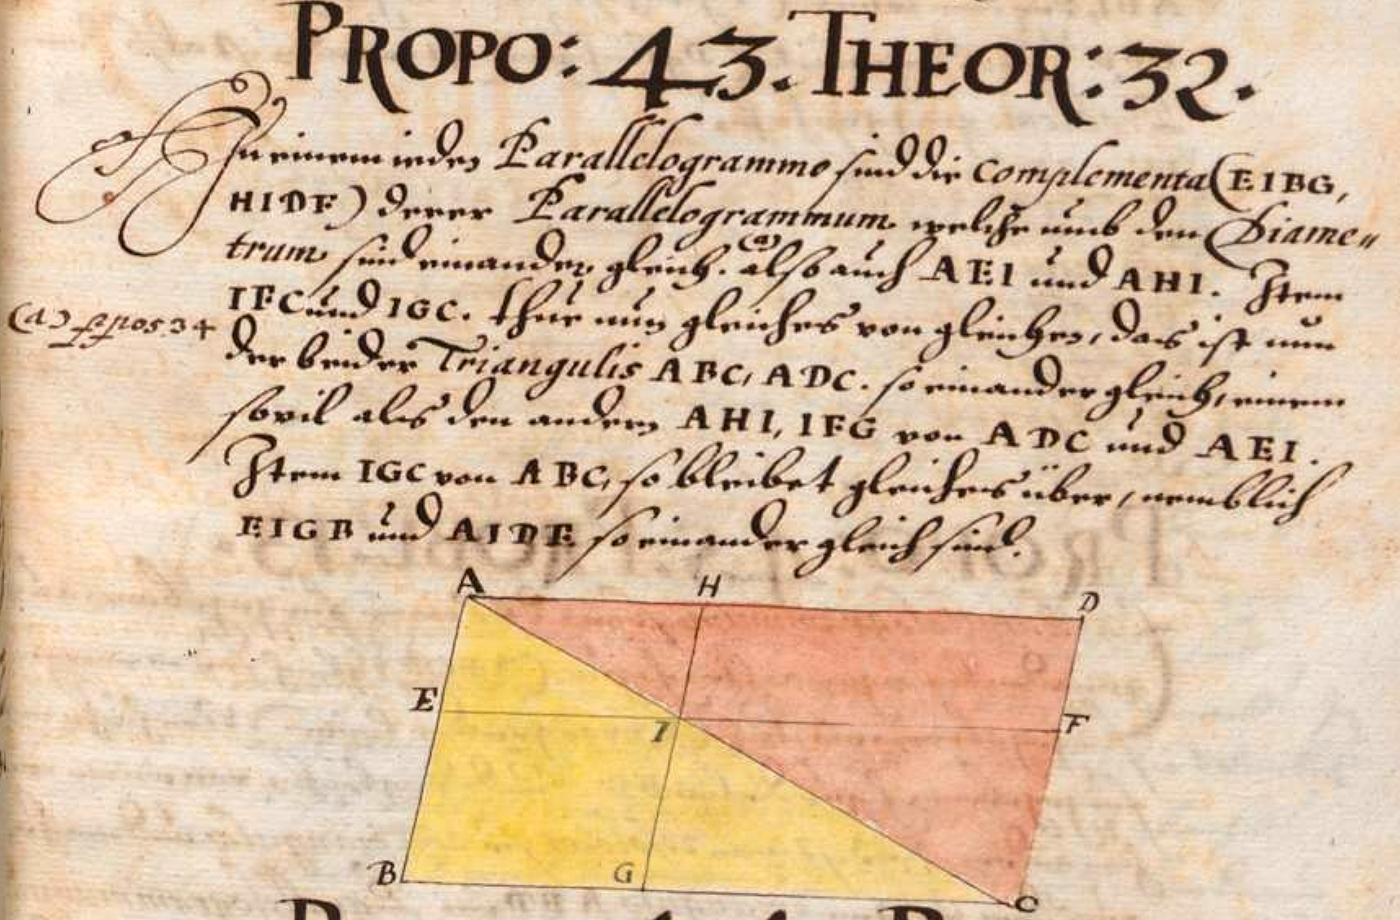 PROPO: 43. THEOR: 32.
In einem ieden Parallelogrammo sind die complementa (EIBG,
HIDF) derer Parallelogrammum welche umb den Diame„
trum sind einander gleich. (a) also auch AEI und AHI. Item
(a) p pos 34
IFC und IGC. thue nun gleiches von gleichen, das ist nun
der beider Triangulis ABC, ADC. so einander gleich, einem
sovil als den andern AHI, IFG von ADC und AEI.
Item IGC von ABC, so bleibet gleiches über, nemblich
EIGB und AIDF so einander gleich sind.
A H D
E I F
B G C